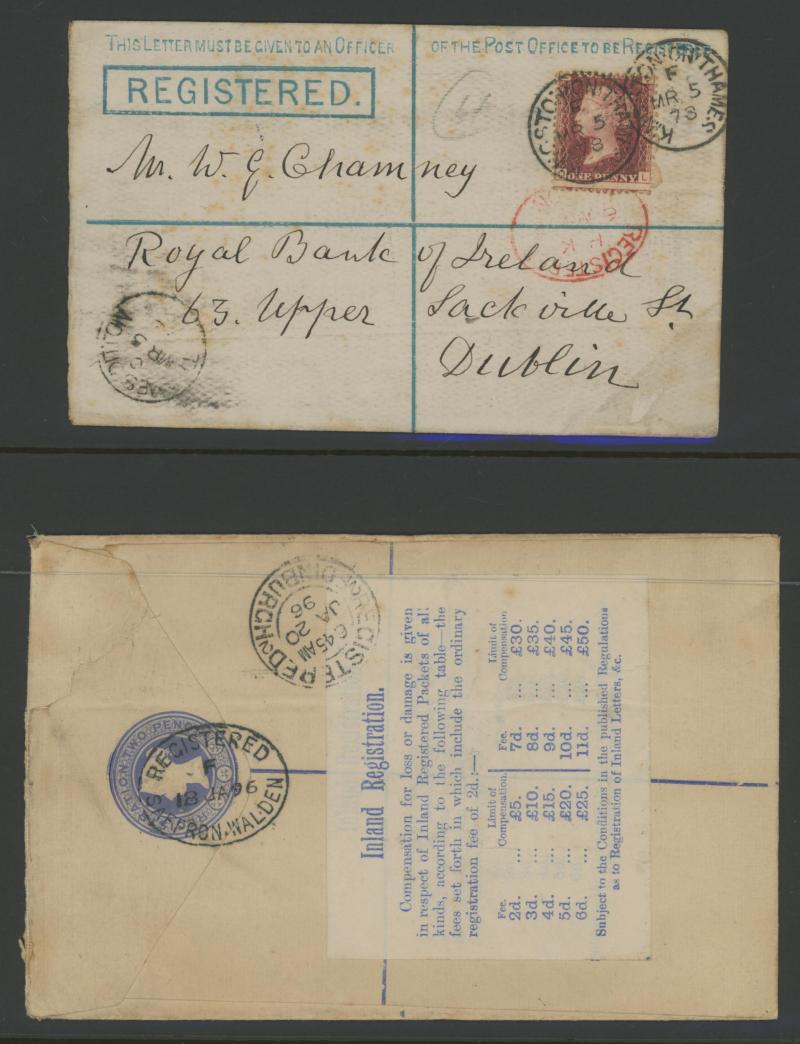 THIS LETTER MUST BE GIVEN TO AN OFFICER OF THE POST OFFICE TO BE REGISTERED
REGISTERED.
4
KINGSTON-ON-THAMES
F
MR 5
78
KINGSTON-ON-THAMES
MR 5
ONE PENNY
L
REGISTERED
Mr. W. G. Chamney
Royal Bank of Ireland
63. Upper Sackville St
Dublin
THAMES DITTON
MR 5
REGISTERED EDINBURGH
6.45 AM
JA 20
96
REGISTRATION TWO PENCE
REGISTERED
F
18 JA 96
SAFFRON.WALDEN
Inland Registration.
Compensation for loss or damage is given
in respect of Inland Registered Packets of all
kinds, according to the following table—the
fees set forth in which include the ordinary
registration fee of 2d.:—
Fee. Limit of Compensation Fee. Limit of Compensation
2d. ... £5. 7d. ... £30.
3d. ... £10. 8d. ... £35.
4d. ... £15. 9d. ... £40.
5d. ... £20. 10d. ... £45.
6d. ... £25. 11d. ... £50.
Subject to the Conditions in the published Regulations
as to Registration of Inland Letters, &c.